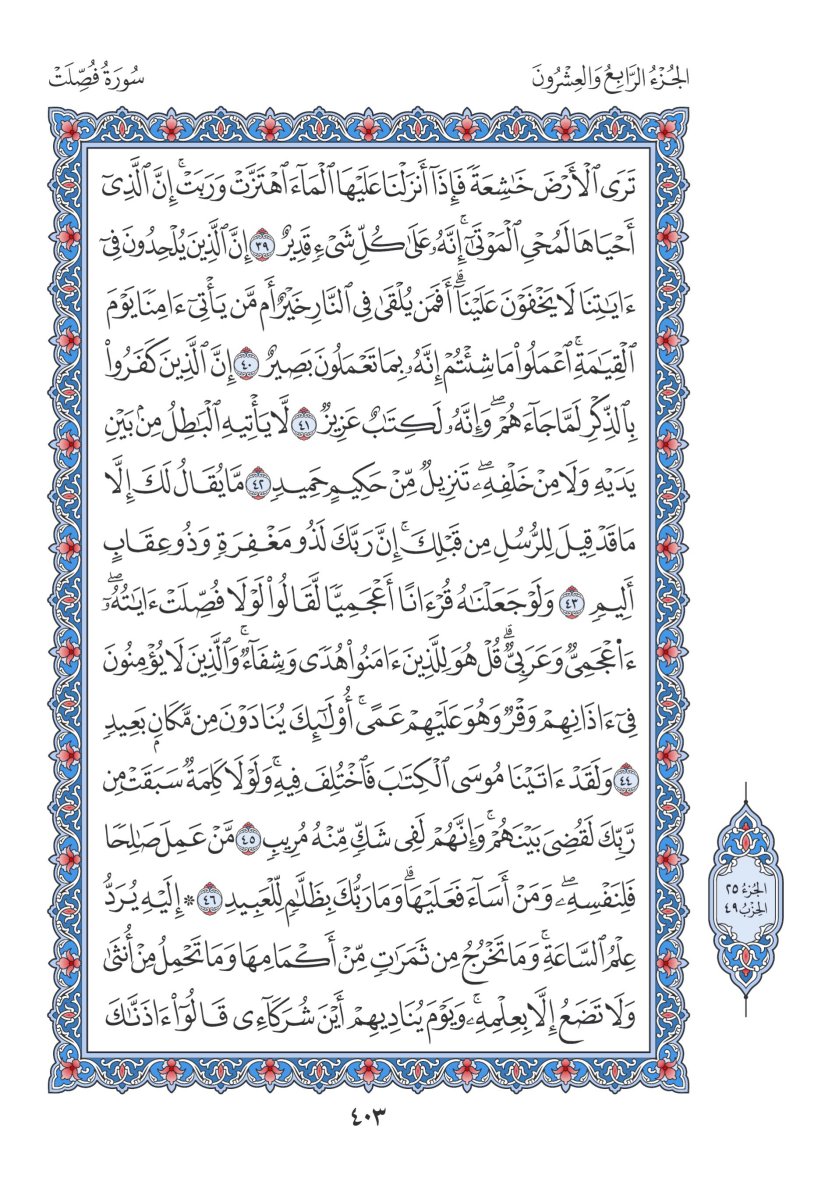 الجُزْءُ الرَّابِعُ وَالعِشْرُونَ
سُورَةُ فُصِّلَتْ
تَرَى ٱلْأَرْضَ خَٰشِعَةً فَإِذَآ أَنزَلْنَا عَلَيْهَا ٱلْمَآءَ ٱهْتَزَّتْ وَرَبَتْ ۚ إِنَّ ٱلَّذِىٓ
أَحْيَاهَا لَمُحْىِ ٱلْمَوْتَىٰٓ ۚ إِنَّهُۥ عَلَىٰ كُلِّ شَىْءٍ قَدِيرٌ ٣٩ إِنَّ ٱلَّذِينَ يُلْحِدُونَ فِىٓ
ءَايَٰتِنَا لَا يَخْفَوْنَ عَلَيْنَآ ۗ أَفَمَن يُلْقَىٰ فِى ٱلنَّارِ خَيْرٌ أَم مَّن يَأْتِىٓ ءَامِنًا يَوْمَ
ٱلْقِيَٰمَةِ ۚ ٱعْمَلُوا۟ مَا شِئْتُمْ إِنَّهُۥ بِمَا تَعْمَلُونَ بَصِيرٌ ٤٠ إِنَّ ٱلَّذِينَ كَفَرُوا۟
بِٱلذِّكْرِ لَمَّا جَآءَهُمْ ۖ وَإِنَّهُۥ لَكِتَٰبٌ عَزِيزٌ ٤١ لَّا يَأْتِيهِ ٱلْبَٰطِلُ مِنۢ بَيْنِ
يَدَيْهِ وَلَا مِنْ خَلْفِهِۦ ۖ تَنزِيلٌ مِّنْ حَكِيمٍ حَمِيدٍ ٤٢ مَّا يُقَالُ لَكَ إِلَّا
مَا قَدْ قِيلَ لِلرُّسُلِ مِن قَبْلِكَ ۚ إِنَّ رَبَّكَ لَذُو مَغْفِرَةٍ وَذُو عِقَابٍ
أَلِيمٍ ٤٣ وَلَوْ جَعَلْنَٰهُ قُرْءَانًا أَعْجَمِيًّا لَّقَالُوا۟ لَوْلَا فُصِّلَتْ ءَايَٰتُهُۥٓ ۖ
ءَا۬عْجَمِىٌّ وَعَرَبِىٌّ ۗ قُلْ هُوَ لِلَّذِينَ ءَامَنُوا۟ هُدًى وَشِفَآءٌ ۖ وَٱلَّذِينَ لَا يُؤْمِنُونَ
فِىٓ ءَاذَانِهِمْ وَقْرٌ وَهُوَ عَلَيْهِمْ عَمًى ۚ أُو۟لَٰٓئِكَ يُنَادَوْنَ مِن مَّكَانٍۭ بَعِيدٍ
٤٤ وَلَقَدْ ءَاتَيْنَا مُوسَى ٱلْكِتَٰبَ فَٱخْتُلِفَ فِيهِ ۚ وَلَوْلَا كَلِمَةٌ سَبَقَتْ مِن
رَّبِّكَ لَقُضِىَ بَيْنَهُمْ ۚ وَإِنَّهُمْ لَفِى شَكٍّ مِّنْهُ مُرِيبٍ ٤٥ مَّنْ عَمِلَ صَٰلِحًا
فَلِنَفْسِهِۦ ۖ وَمَنْ أَسَآءَ فَعَلَيْهَا ۗ وَمَا رَبُّكَ بِظَلَّٰمٍ لِّلْعَبِيدِ ٤٦ * إِلَيْهِ يُرَدُّ
عِلْمُ ٱلسَّاعَةِ ۚ وَمَا تَخْرُجُ مِن ثَمَرَٰتٍ مِّنْ أَكْمَامِهَا وَمَا تَحْمِلُ مِنْ أُنثَىٰ
وَلَا تَضَعُ إِلَّا بِعِلْمِهِۦ ۚ وَيَوْمَ يُنَادِيهِمْ أَيْنَ شُرَكَآءِى قَالُوٓا۟ ءَاذَنَّٰكَ
الجُزْءُ ٢٥
الحِزْبُ ٤٩
٤٠٣